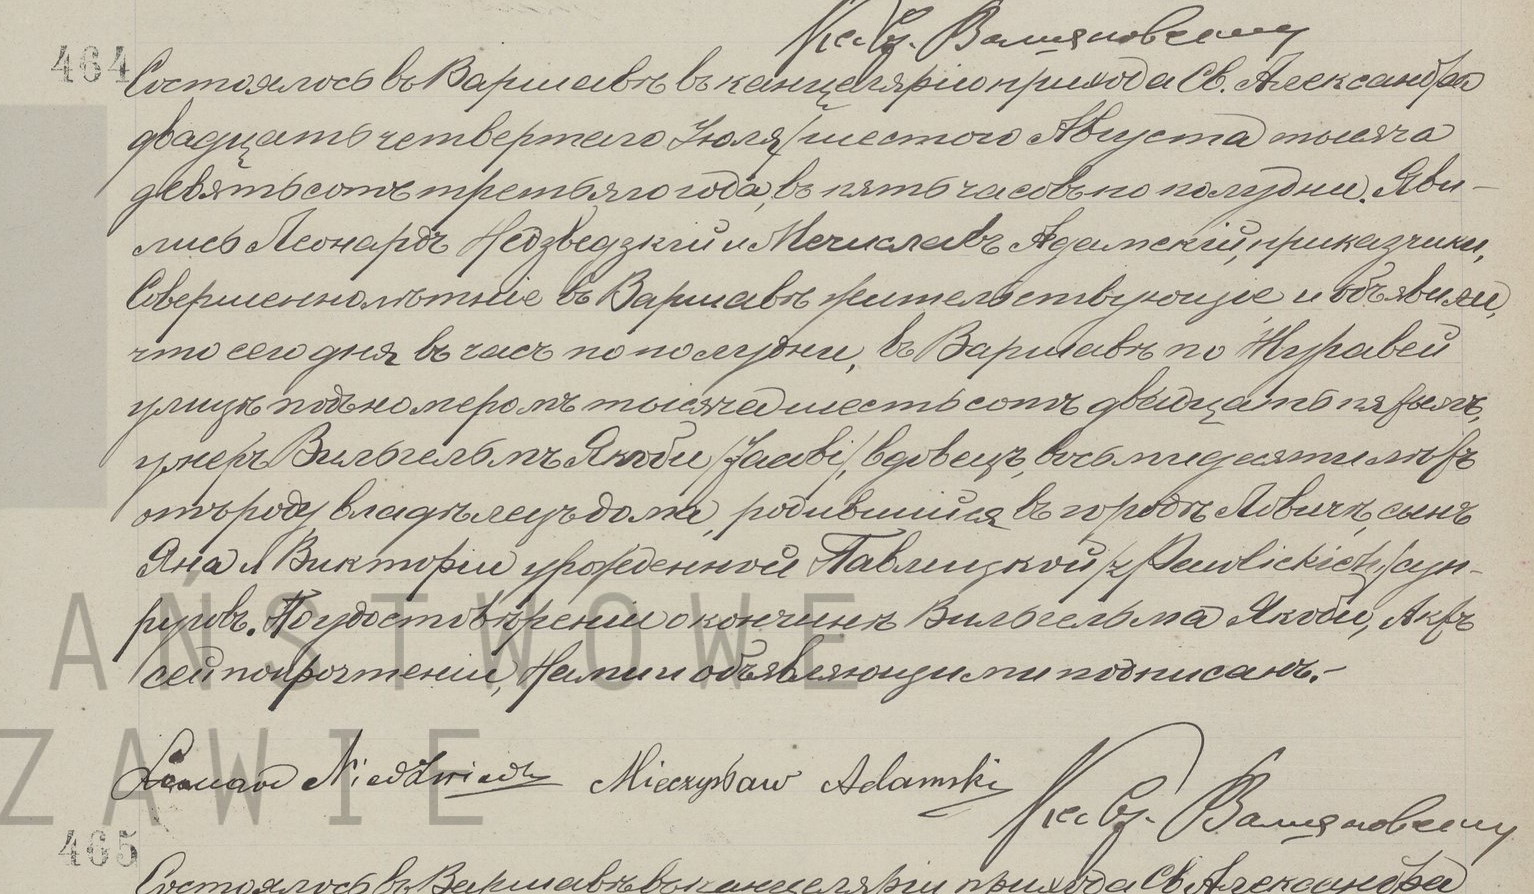 Кс. Вл.
464
Состоялось въ Варшавѣ въ канцеляріи прихода Св. Александра
двадцать четвертаго Іюля / шестого Августа тысяча
девятьсотъ третьяго года, въ пять часовъ по полудни. Яви-
лись Леонардъ Недзведзкій и Мечиславъ Адамскій, приказчики,
совершеннолѣтніе въ Варшавѣ жительствующіе и объявили,
что сего дня въ часъ по полудни, въ Варшавѣ по Журавей
улицѣ подъ номеромъ тысяча шестьсотъ двадцать пятымъ,
умеръ Вильгельмъ Якоби /Jacobi/, вдовецъ, восьмидесяти лѣтъ
отъ роду, владѣлецъ дома, родившійся въ городѣ Ловичѣ, сынъ
Яна и Викторіи урожденной Павлицкой /z Pawlickich/ суп-
руговъ. По удостовѣреніи о кончинѣ Вильгельма Якоби, Актъ
сей по прочтеніи, Нами и объявляющими подписанъ.-
AŃSTWOWE
Leonard Niedźwiedzki Mieczysław Adamski
Кс. Вл.
ZAWIE
465
Состоялось въ Варшавѣ въ канцеляріи прихода Св. Александра